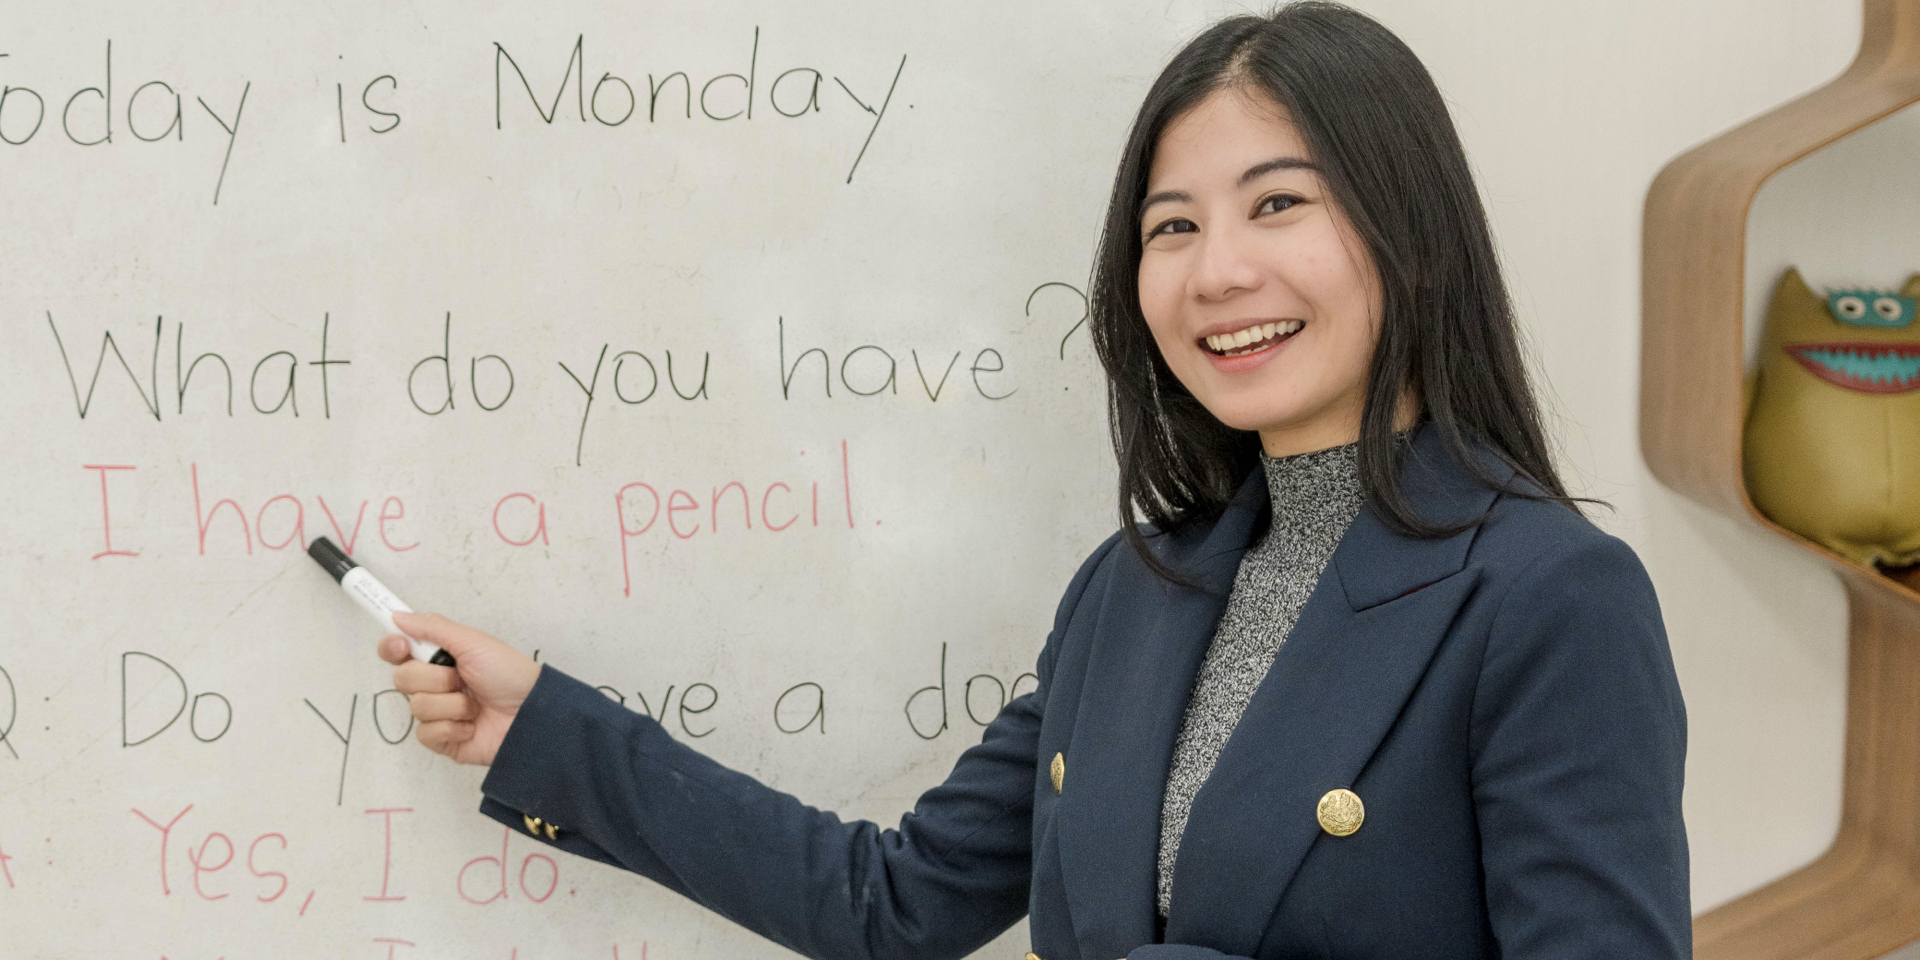 Today is Monday.
What do you have?
I have a pencil.
Q: Do you have a
A: Yes, I do.